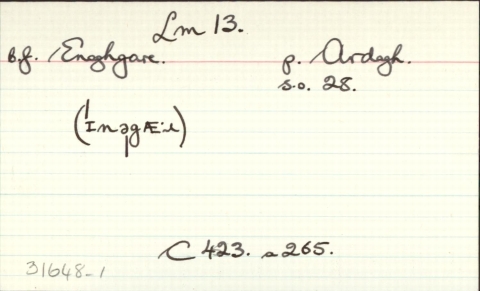 Lm 13.
b.f. Enaghgare. p. Ardagh.
s.o. 28.
(ˈɪnəgÆːl)
C 423. a 265.
31648-1